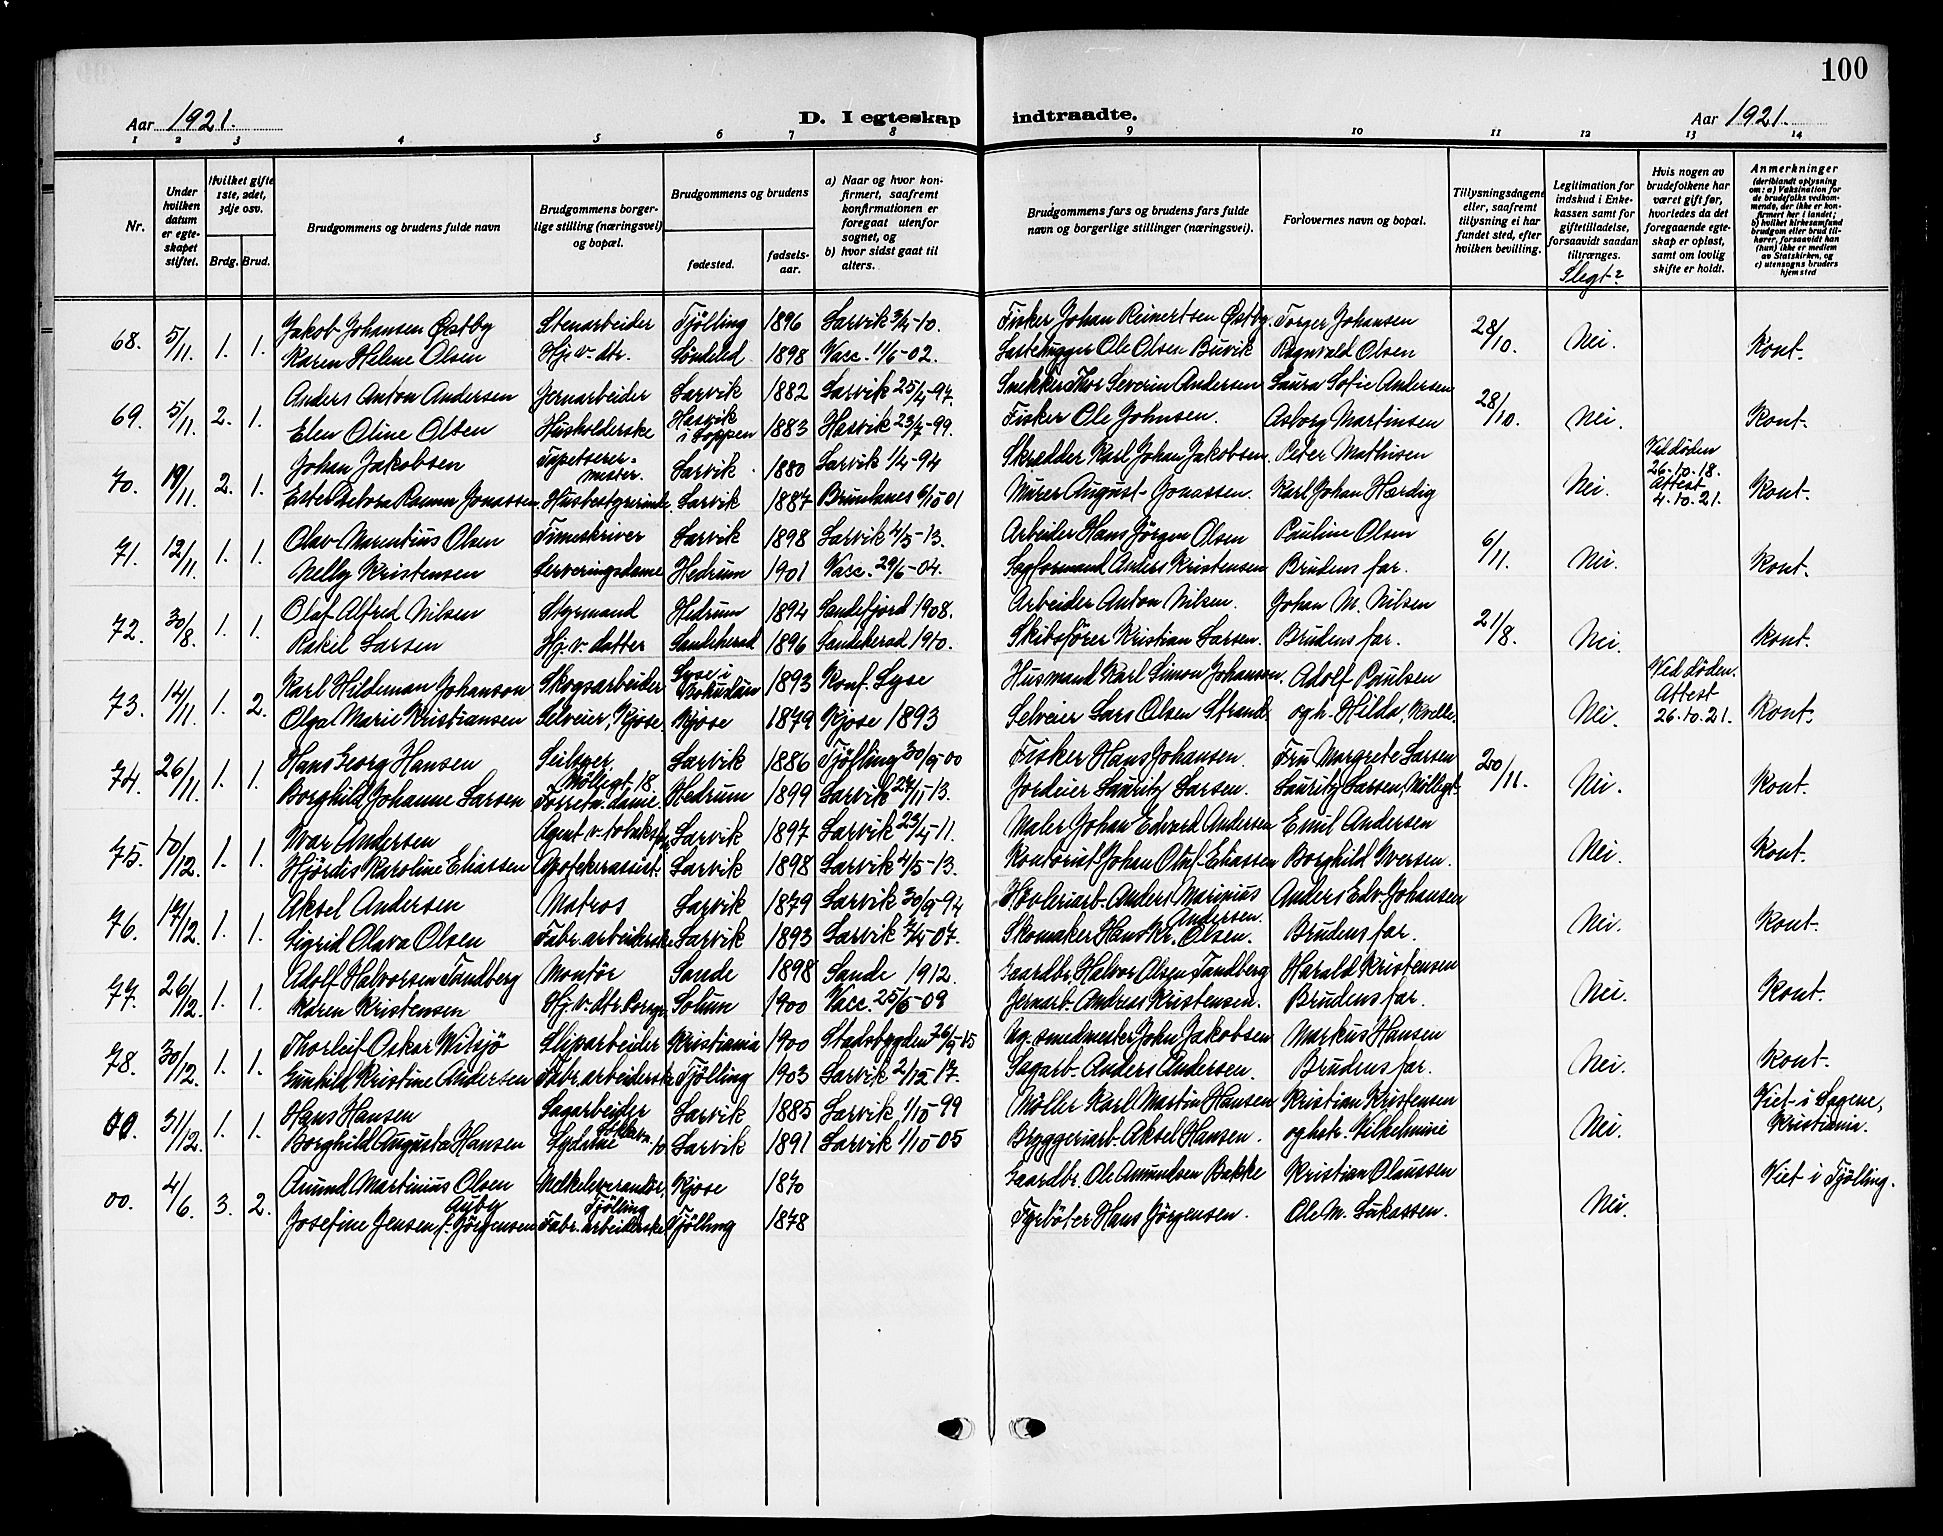 100
Aar 1921.
D. I egteskap indtraadte.
Aar 1921.
1 2 3 4 5 6 7 8 9 10 11 12 13 14
Nr.
Under hvilken datum er egteskapet stiftet.
Hvilket gifte 1ste, 2det, 3dje osv.
Brdg. Brud.
Brudgommens og brudens fulde navn
Brudgommens borgerlige stilling (næringsvei) og bopæl.
Brudgommens og brudens
fødested.
fødselsaar.
a) Naar og hvor konfirmert, saafremt konfirmationen er foregaat utenfor sognet, og
b) hvor sidst gaat til alters.
Brudgommens fars og brudens fars fulde navn og borgerlige stillinger (næringsvei).
Forlovernes navn og bopæl.
Tillysningsdagene eller, saafremt tillysning ei har fundet sted, efter hvilken bevilling.
Legitimation for indskud i Enkekassen samt for giftetilladelse, forsaavidt saadan tiltrænges.
Slegt?
Hvis nogen av brudefolkene har været gift før, hvorledes da det foregaaende egteskap er opløst, samt om lovlig skifte er holdt.
Anmerkninger (deriblandt oplysning om: a) Vaksination for de brudefolks vedkommende, der ikke er konfirmert her i landet; b) hvilket kirkesamfund brudgom eller brud tilhører, forsaavidt han (hun) ikke er medlem av Statskirken, og c) utensogns bruders hjemsted
68. 5/11. 1. 1. Jakob Johansen Østby Stenarbeider Tjölling 1896 Larvik 3/4-10. Fisker Johan Reinertsen Østby. Torger Johansen 28/10. Nei. Kont.
Karen Helene Olsen Hj. v. dtr. Söndeled 1898 Vacc. 11/6-02. Lastehugger Ole Olsen Buvik Ragnvald Olsen
69. 5/11. 2. 1. Anders Anton Andersen Jernarbeider Larvik 1882 Larvik 25/4-97. Snekker Thor Severin Andersen Laura Sofie Andersen 28/10. Nei. Kont.
Elen Oline Olsen Husholderske Hasvik i Loppen 1883 Hasvik 23/7-99. Fisker Ole Johnsen. Asborg Martinsen
70. 19/11. 2. 1. Johan Jakobsen Tapetserermester. Larvik 1880 Larvik 1/4-94 Skrædder Karl Johan Jakobsen. Peter Mathisen Nei. Ved döden 26-10-18. Attest 4.10.21. Kont.
Ester Debora Ramm Jonassen. Husbestyrerinde. Larvik 1887 Brunlanes 6/10 01 Murer August Jonassen. Karl Johan Hærdig
71. 12/11. 1. 1. Olav Marentius Olsen Timeskriver Larvik 1898 Larvik 4/5-13. Arbeider Hans Jörgen Olsen Pauline Olsen 6/11. Nei. Kont.
Nelly Kristensen Serveringsdame Hedrum 1901 Vacc. 29/6-04. Sagformand Anders Kristensen Brudens far.
72. 30/8. 1. 1. Olaf Alfred Nilsen Styrmand Hedrum 1894 Sandefjord 1908. Arbeider Anton Nilsen. Johan M. Nilsen 21/8. Nei. Kont.
Rakel Larsen Hj. v. datter Sandeherad 1896 Sandeherad 1910. Skibsförer Kristian Larsen. Brudens far.
73. 12/11. 1. 2. Karl Hildeman Johanson Skogsarbeider Lyse i Bohuslän 1893 Konf. Lyse Husmand Karl Simon Johansen. Adolf Paulsen Nei. Ved döden. Attest 26.10.21. Kont.
Olga Marie Kristiansen Selveier, Kjose. Kjose 1879 Kjose 1893 Selveier Lars Olsen Strand og h. Hilda, Kvelle.
74. 26/11. 1. 1. Hans Georg Hansen Seilsyer, Möllegt 18. Larvik 1886 Tjölling 30/9-00 Fisker Hans Johansen. Fru Margrete Larsen 20/11. Nei. Kont.
Borghild Johanne Larsen Forretn. dame Hedrum 1899 Larvik 27/11-13. Jordeier Lauritz Larsen. Lauritz Larsen, Möllegt.
75. 10/12. 1. 1. Ivar Andersen Agent v. tobaksf. Larvik 1897 Larvik 23/4-11. Maler Johan Edvard Andersen Emil Andersen Nei. Kont.
Hjördis Karoline Eliassen Apotekerassist. Larvik 1898 Larvik 4/5-13. Kontorist Johan Olaf Eliassen Borghild Iversen.
76. 17/12. 1. 1. Aksel Andersen Matros Larvik 1879 Larvik 30/9-94 Hövleriarb. Anders Marinius Andersen. Anders Edv. Johansen Nei. Kont.
Sigrid Olava Olsen Fabr. arbeiderske Larvik 1893 Larvik 7/4-07. Skomaker Hans Kr. Olsen. Brudens far.
77. 26/12. 1. 1. Adolf Halvorsen Tandberg Montör Sande 1898 Sande 1912. Gaardbr. Halvor Olsen Tandberg Harald Kristensen Nei. Kont.
Karen Kristensen Hj. v. dtr. Solum 1900 Vacc. 25/5-09 Jernarb. Andreas Kristensen. Brudens far.
78. 30/12. 1. 1. Thorleif Oskar Witsjö Sliparbeider Kristiania 1900 Stadsbygden 26/9-15 Ug. smedmester John Jakobsen Markus Hansen Nei. Kont.
Gunhild Kristine Andersen Fabr. arbeiderske Tjölling 1903 Larvik 2/12-17. Sagarb. Anders Andersen. Brudens far.
00. 31/12. 1. 1. Hans Hansen Sagarbeider Larvik 1885 Larvik 1/10-99 Möller Karl Martin Hansen Kristian Kristensen Nei. Viet i Sagene, Kristiania.
Borghild Augusta Hansen Sydame Larvik 1891 Larvik 1/10-05 Bryggeriarb. Aksel Hansen. og hstr. Vilhelmine
00. 4/6. 3. 2. Amund Martinius Olsen Melkeleverandör, Tjölling Kjose 1870 Gaardbr. Ole Amundsen Bakke Kristian Olaussen Nei. Viet i Tjölling.
Josefine Jensen Auby f. Jörgensen Fabr. arbeiderske Tjölling 1878 Fyrböter Hans Jörgensen. Ole M. Lukassen.